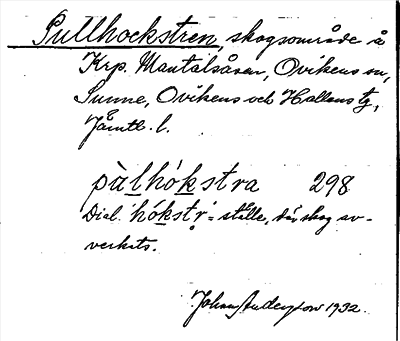 Pullhockstren, skogsområde å
Krp. Mantalsåsen, Ovikens sn,
Sunne, Ovikens och Hallens tg,
Jämtl. l.
pùlhókstra 298
Dial. hókstr̥ = ställe, där skog av-
verkats.
Johan Anderson 1932.